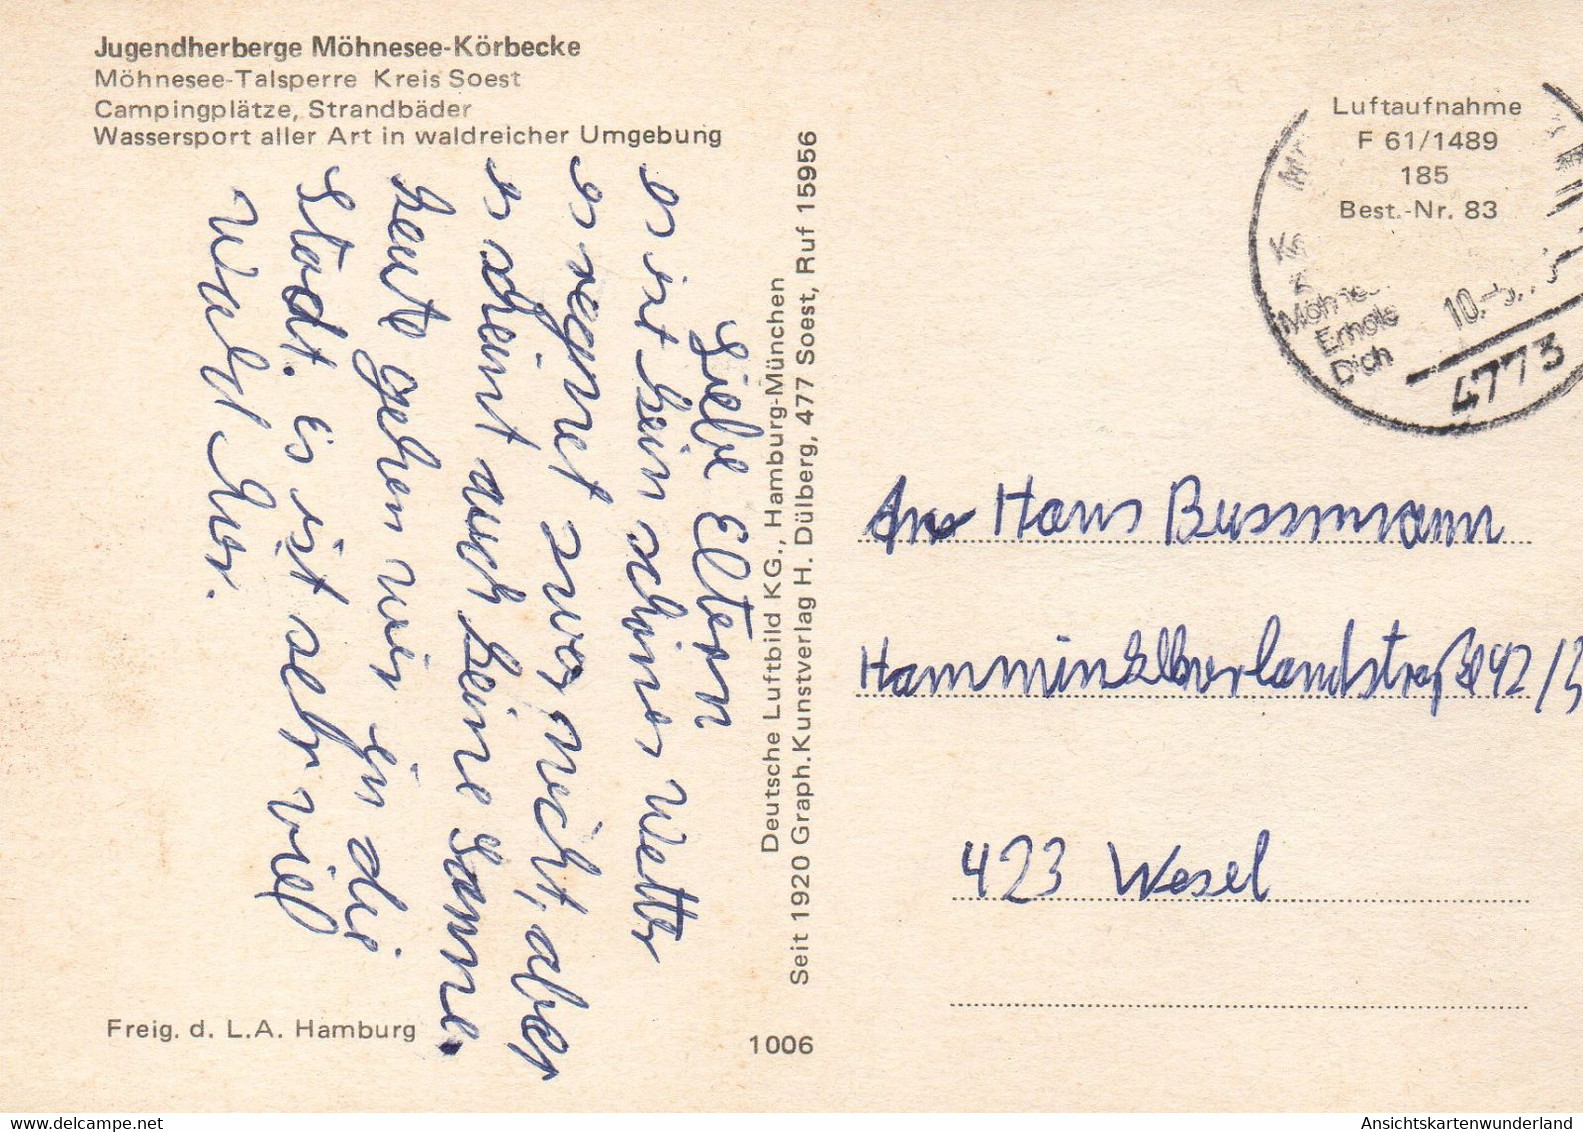 Jugendherberge Möhnesee-Körbecke
Möhnesee-Talsperre Kreis Soest
Campingplätze, Strandbäder
Wassersport aller Art in waldreicher Umgebung
Liebe Eltern
es ist kein schönes Wetter
es regnet zwar nicht, aber
es scheint auch keine Sonne.
Heute gehen wir in die
Stadt. Es ist sehr viel
Wald hier.
Freig. d. L.A. Hamburg
1006
Deutsche Luftbild KG., Hamburg-München
Seit 1920 Graph. Kunstverlag H. Dülberg, 477 Soest, Ruf 15956
Luftaufnahme
F 61/1489
185
Best.-Nr. 83
Erhole
Dich
4773
An Hans Bussmann
423 Wesel
Ansichtskartenwunderland